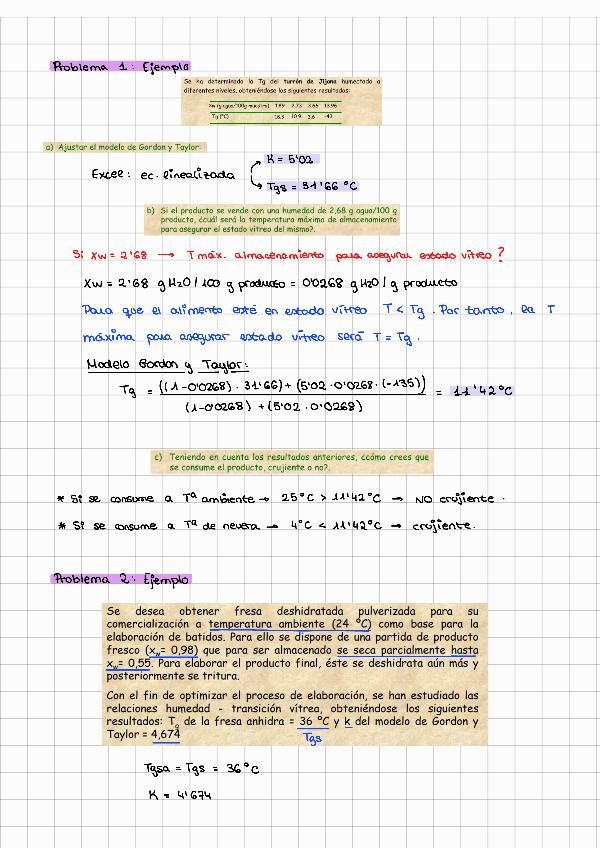 Problema 1: Ejemplo
Se ha determinado la Tg del turrón de Jijona humectado a
diferentes niveles, obteniéndose los siguientes resultados:
Xw (g agua/100g muestra) 1.89 2.73 3.66 13.96
Tg (°C) 18.3 10.9 3.6 -43
a) Ajustar el modelo de Gordon y Taylor:
K = 5'02
Excel: ec. linealizada
Tgs = 31'66 °C
b) Si el producto se vende con una humedad de 2,68 g agua/100 g
producto, ¿cuál será la temperatura máxima de almacenamiento
para asegurar el estado vítreo del mismo?.
Si Xw = 2'68 → T máx. almacenamiento para asegurar estado vítreo?
Xw = 2'68 g H2O / 100 g producto = 0'0268 g H2O / g producto
Para que el alimento esté en estado vítreo T < Tg. Por tanto, la T
máxima para asegurar estado vítreo será T = Tg.
Modelo Gordon y Taylor:
Tg = ((1-0'0268) · 31'66) + (5'02 · 0'0268 · (-135)) / (1-0'0268) + (5'02 · 0'0268) = 11'42 °C
c) Teniendo en cuenta los resultados anteriores, ¿cómo crees que
se consume el producto, crujiente o no?.
* Si se consume a Tª ambiente → 25°C > 11'42°C → NO crujiente.
* Si se consume a Tª de nevera → 4°C < 11'42°C → crujiente.
Problema 2: Ejemplo
Se desea obtener fresa deshidratada pulverizada para su
comercialización a temperatura ambiente (24 °C) como base para la
elaboración de batidos. Para ello se dispone de una partida de producto
fresco (xw= 0,98) que para ser almacenado se seca parcialmente hasta
xw= 0,55. Para elaborar el producto final, éste se deshidrata aún más y
posteriormente se tritura.
Con el fin de optimizar el proceso de elaboración, se han estudiado las
relaciones humedad - transición vítrea, obteniéndose los siguientes
resultados: Tg de la fresa anhidra = 36 °C y k del modelo de Gordon y
Taylor = 4,674
Tgs
Tgsa = Tgs = 36°C
K = 4'674